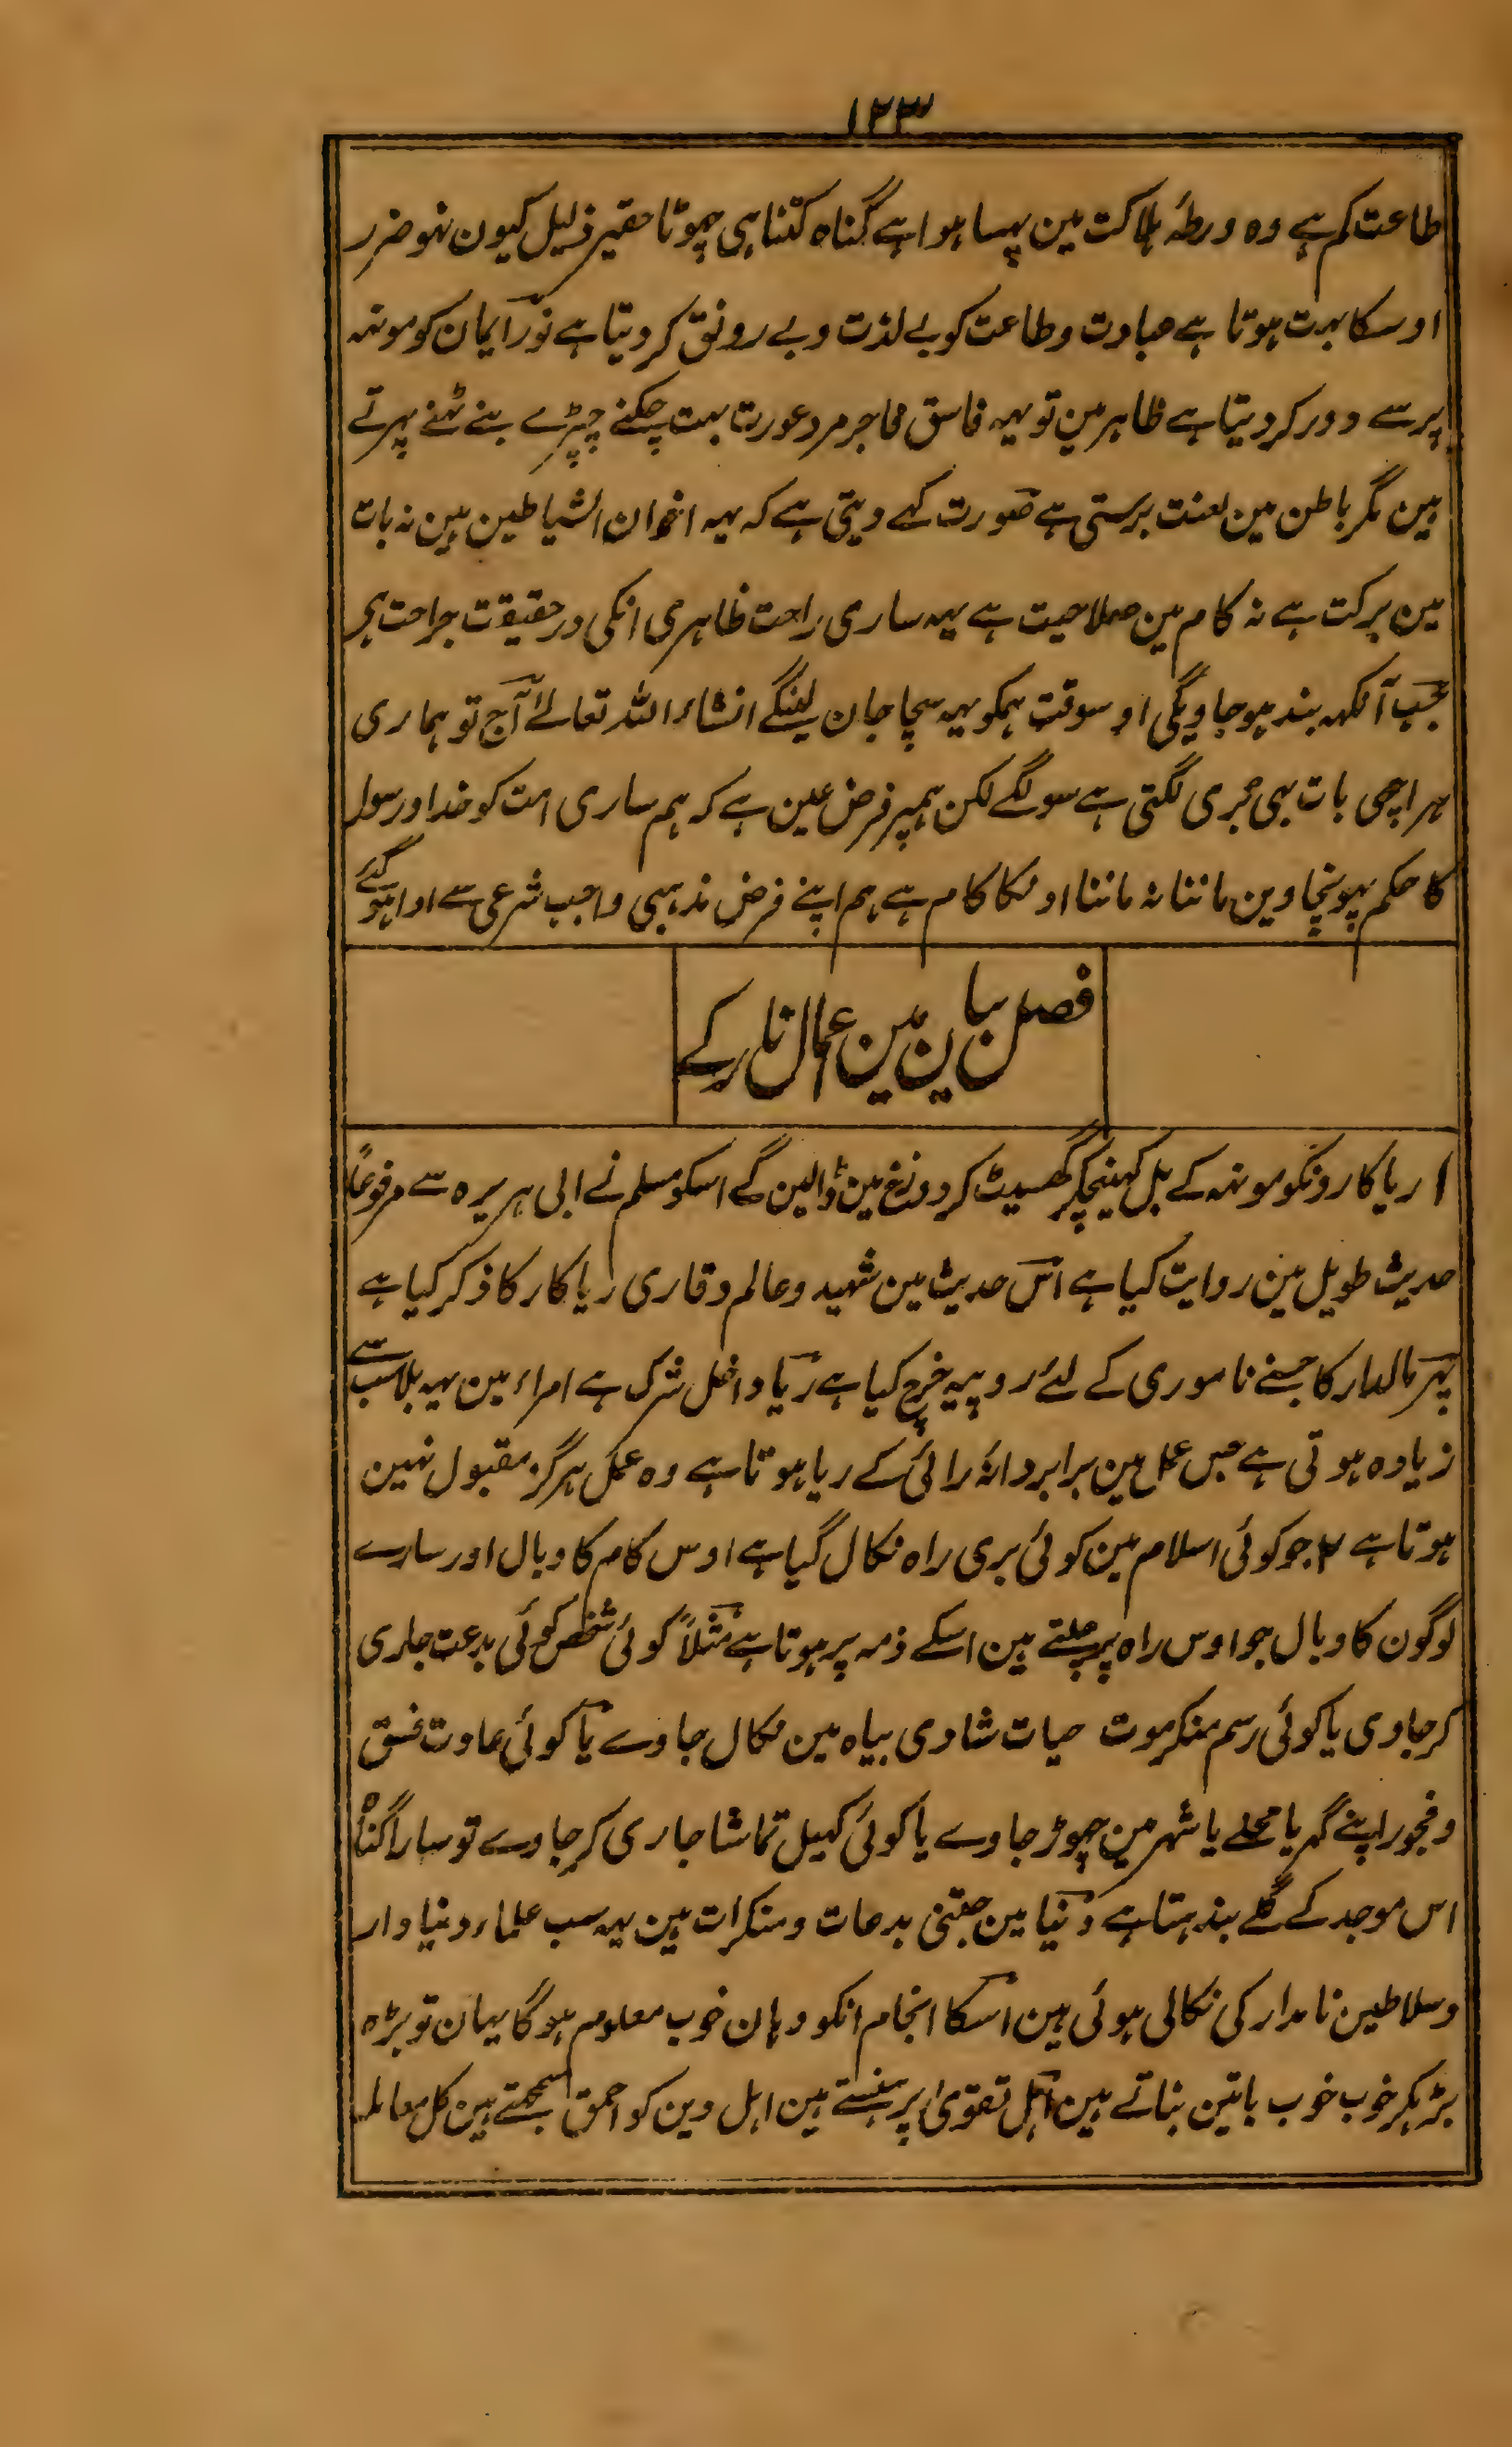 ۱۲۳
طاعت کم ہے وہ ورطۂ ہلاکت مین پہسا ہوا ہے گناہ کتنا ہی چہوٹا حقیر ذلیل کیون نہو ضرر
اوسکا بہت ہوتا ہے عبادت وطاعت کو بے لذت وبے رونق کر دیتا ہے نور ایمان کو مونہہ
پر سے دور کر دیتا ہے ظاہر مین تو یہہ فاسق فاجر مرد عورت بہت چکنے چپڑے بنے ٹہنے پہرتے
ہین مگر باطن مین لعنت برستی ہے صورت کہے دیتی ہے کہ یہہ اخوان الشیاطین ہین نہ بات
مین برکت ہے نہ کام مین صلاحیت ہے یہہ ساری راحت ظاہری انکی درحقیقت جراحت ہے
جب آنکہہ بند ہو جاویگی اوسوقت ہمکو یہہ سچا جان لینگے انشاء اللہ تعالےٰ آج تو ہماری
ہر اچھی بات بہی بُری لگتی ہے سو لگے لکن ہمپر فرض عین ہے کہ ہم ساری امت کو خدا ورسول
کا حکم پہونچاوین ماننا نہ ماننا اونکا کام ہے ہم اپنے فرض مذہبی واجب شرعی سے ادا ہو گئے
فصل بیان مین عمال نار کے
۱ ریاکارونکو مونہہ کے بل کہینچکر گھسیٹ کر دوزخ مین ڈالین گے اسکو مسلم نے ابی ہریرہ سے مرفوعًا
حدیث طویل مین روایت کیا ہے اس حدیث مین شہید وعالم وقاری ریاکار کا ذکر کیا ہے
پہر مالدار کا جسنے ناموری کے لئے روپیہ خرچ کیا ہے ریا داخل شرک ہے امراء مین یہہ بلا سب سے
زیادہ ہوتی ہے جس عمل مین برابر دانۂ رائی کے ریا ہوتا ہے وہ عمل ہرگز مقبول نہین
ہوتا ہے ۲ جو کوئی اسلام مین کوئی بری راہ نکال گیا ہے اوس کام کا وبال اور سارے
لوگون کا وبال جو اوس راہ پر چلتے ہین اسکے ذمہ پر ہوتا ہے مثلًا کوئی شخص کوئی بدعت جاری
کر جاوی یا کوئی رسم منکر موت حیات شادی بیاہ مین نکال جاوے یا کوئی عادت فسق
وفجور اپنے گہر یا محلے یا شہر مین چہوڑ جاوے یا کوئی کہیل تماشا جاری کر جاوے تو سارا گناہ
اس موجد کے گلے بندہتا ہے دنیا مین جتنی بدعات ومنکرات ہین یہہ سب علماء دنیا دار
وسلاطین نامدار کی نکالی ہوئی ہین اسکا انجام انکو وہان خوب معلوم ہو گا یہان تو بڑہ
بڑہکر خوب خوب باتین بناتے ہین اہل تقویٰ پر ہنستے ہین اہل دین کو احمق سمجھتے ہین کل معاملہ